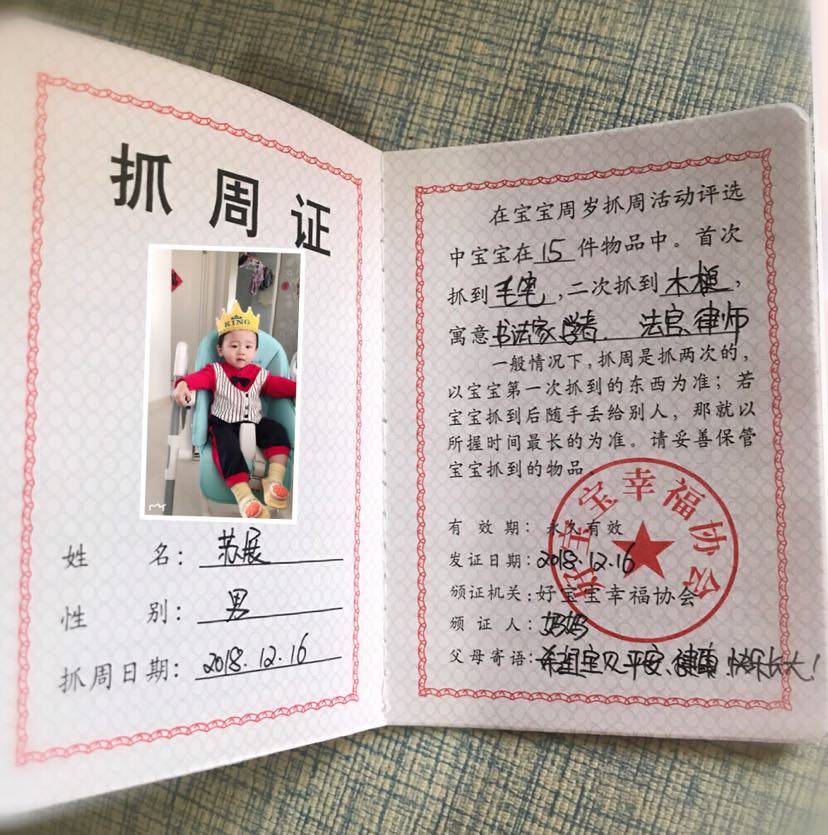 抓周证
KING
姓 名：苏展
性 别：男
抓周日期：2018.12.16
在宝宝周岁抓周活动评选
中宝宝在15件物品中。首次
抓到毛笔，二次抓到木槌，
寓意书法家学者、法官律师
一般情况下，抓周是抓两次的，
以宝宝第一次抓到的东西为准；若
宝宝抓到后随手丢给别人，那就以
所握时间最长的为准。请妥善保管
宝宝抓到的物品。
有 效 期：永久有效
发证日期：2018.12.16
颁证机关：好宝宝幸福协会
颁 证 人：妈妈
父母寄语：希望宝贝平安、健康、快乐长大！
好宝宝幸福协会